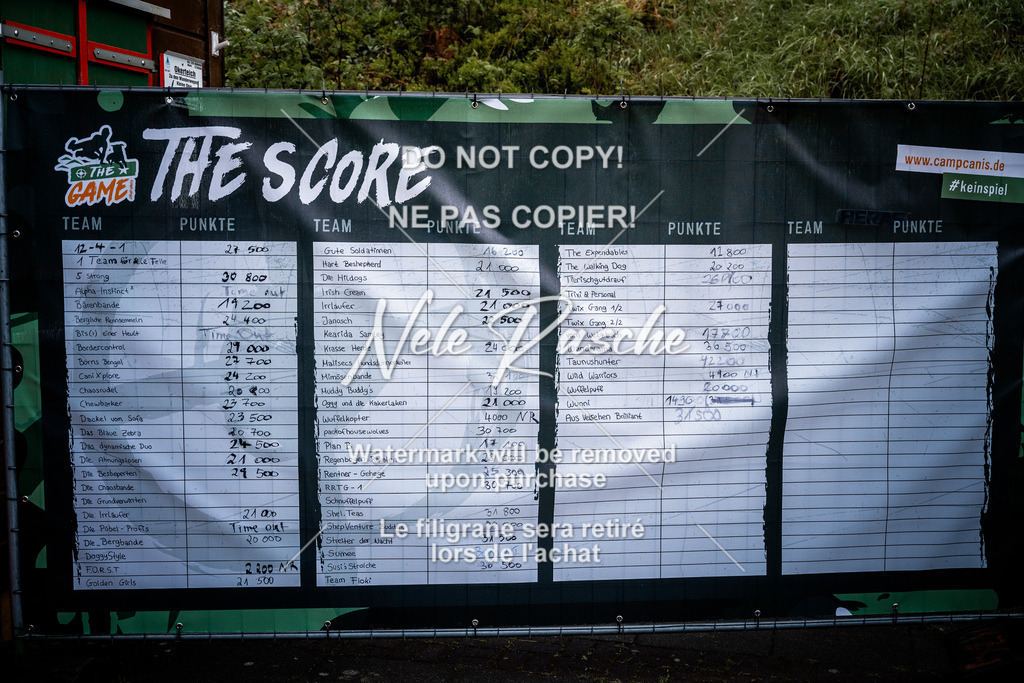 Okerteich
THE GAME
THE SCORE
DO NOT COPY!
NE PAS COPIER!
www.campcanis.de
#keinspiel
TEAM PUNKTE TEAM PUNKTE TEAM PUNKTE TEAM PUNKTE
12-4-1 27 500
1 Team für alle Felle
5 Strong 30 800
Alpha Instinct² Time out
Bärenbande 19 200
Bergische Rennsemmeln 24 400
Bis(s) einer Heult Time Out
Bordercontrol 29 000
Borns Bengel 27 700
Cani Xplore 24 200
Chaosrudel
Chewbarker 23 700
Dackel vom Sofa 23 500
Das Blaue Zebra 20 700
Das dynamische Duo 24 500
Die Ahnungslosen 21 000
Die Besheperten 29 500
Die Chaosbande
Die Grundverwirrten
Die Irrläufer 21 000
Die Pöbel-Profis Time out
Die Bergbande 20 000
DoggyStyle
F.O.R.S.T 2 200 NR
Golden Girls 21 500
Gute Soldatinnen 16 200
Hart Beshepherd 21 000
Die Hitdogs
Irish Cream 21 500
Irrläufer 21 000
Janosch
Kearida
Krasse
Muddy Buddy's 19 200
Oggy und die Kakerlaken 21 000
Wuffelkopter 4000 NR
packofhousewolves 30 700
Plan
Rentner-Gehege 25 300
RRTG-1
Schnuffelpuff
Shel.Teas 31 800
Streber der Nacht 31 500
Sumee
Susi's Strolche 30 500
Team Floki
The Expendables 11 800
The Walking Dog 20 200
Tierischgutdrauf
Trixi & Personal
Twix Gang 1/2 27 000
Twix Gang 2/2
17700
36 500
Taunushunter 42200
Wild Warriors 4900 NR
Wuffelpuff 20 000
Wunni 1430
Aus Velschen Brilliant 31 500
Nele Pasche
Watermark will be removed
upon purchase
Le filigrane sera retiré
lors de l'achat